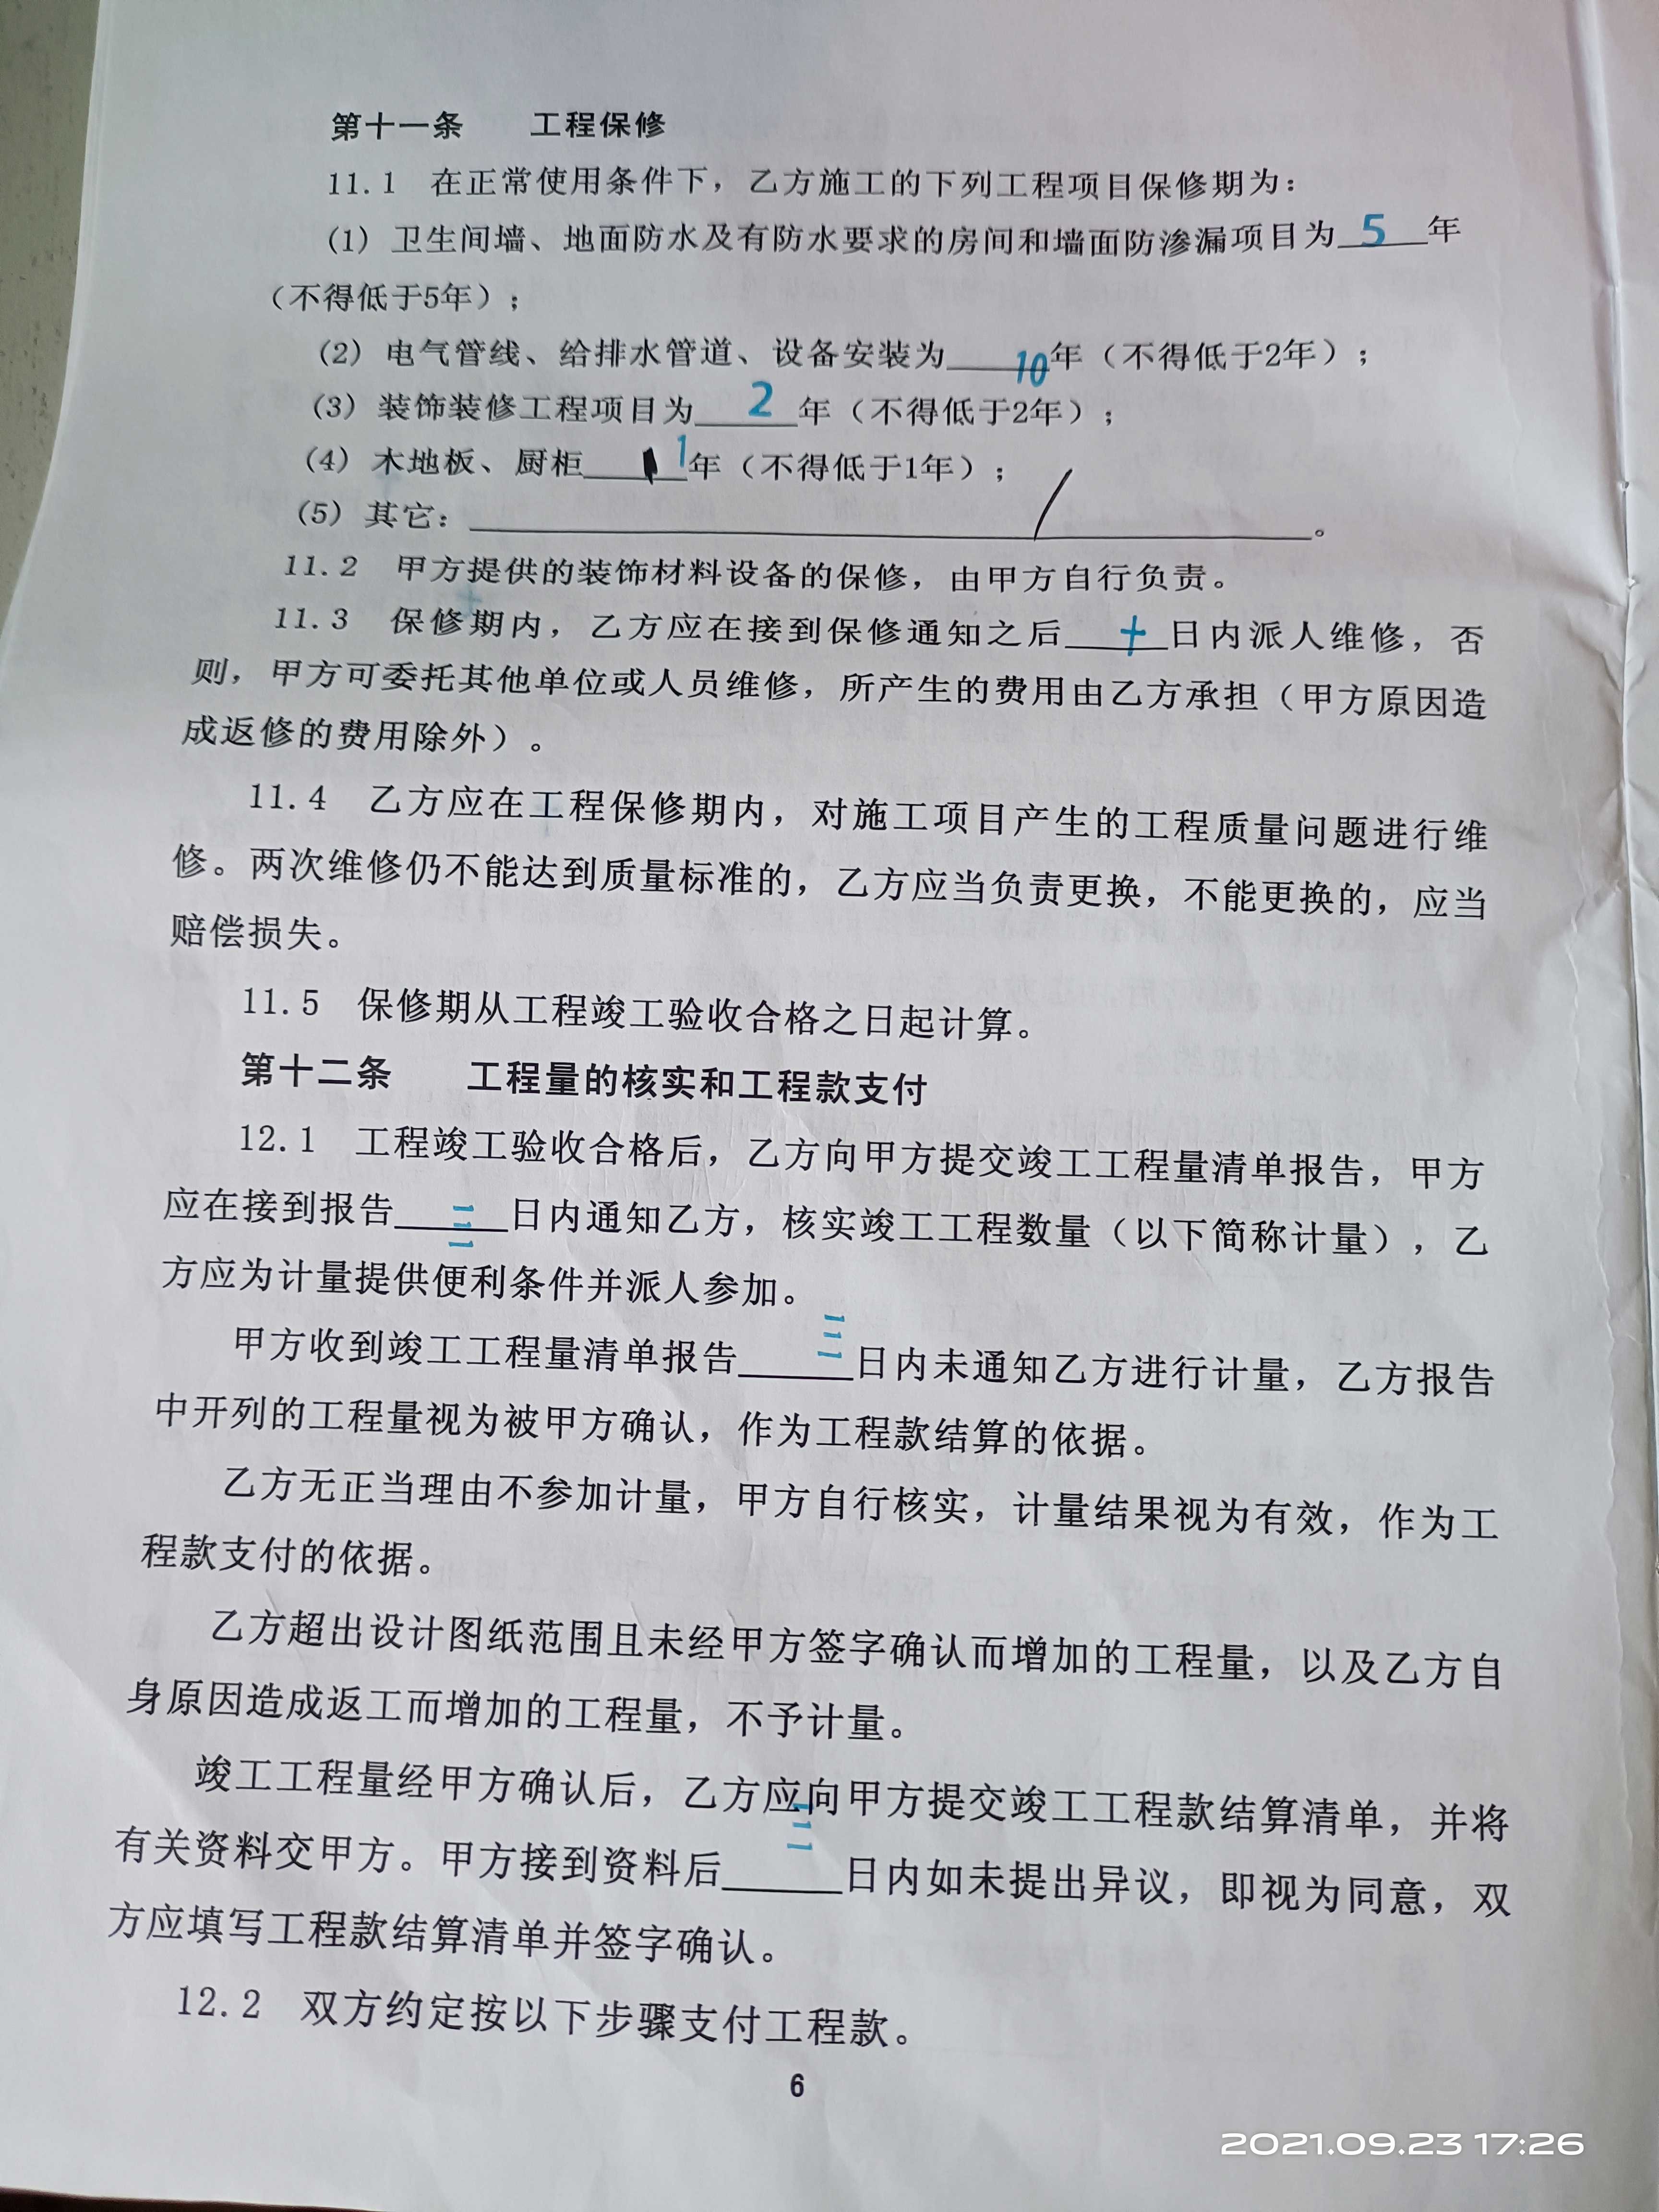 第十一条 工程保修
11.1 在正常使用条件下，乙方施工的下列工程项目保修期为：
(1) 卫生间墙、地面防水及有防水要求的房间和墙面防渗漏项目为 5 年
（不得低于5年）；
(2) 电气管线、给排水管道、设备安装为 10 年（不得低于2年）；
(3) 装饰装修工程项目为 2 年（不得低于2年）；
(4) 木地板、厨柜 1 年（不得低于1年）；
(5) 其它： / 。
11.2 甲方提供的装饰材料设备的保修，由甲方自行负责。
11.3 保修期内，乙方应在接到保修通知之后 十 日内派人维修，否
则，甲方可委托其他单位或人员维修，所产生的费用由乙方承担（甲方原因造
成返修的费用除外）。
11.4 乙方应在工程保修期内，对施工项目产生的工程质量问题进行维
修。两次维修仍不能达到质量标准的，乙方应当负责更换，不能更换的，应当
赔偿损失。
11.5 保修期从工程竣工验收合格之日起计算。
第十二条 工程量的核实和工程款支付
12.1 工程竣工验收合格后，乙方向甲方提交竣工工程量清单报告，甲方
应在接到报告 三 日内通知乙方，核实竣工工程数量（以下简称计量），乙
方应为计量提供便利条件并派人参加。
甲方收到竣工工程量清单报告 三 日内未通知乙方进行计量，乙方报告
中开列的工程量视为被甲方确认，作为工程款结算的依据。
乙方无正当理由不参加计量，甲方自行核实，计量结果视为有效，作为工
程款支付的依据。
乙方超出设计图纸范围且未经甲方签字确认而增加的工程量，以及乙方自
身原因造成返工而增加的工程量，不予计量。
竣工工程量经甲方确认后，乙方应向甲方提交竣工工程款结算清单，并将
有关资料交甲方。甲方接到资料后 三 日内如未提出异议，即视为同意，双
方应填写工程款结算清单并签字确认。
12.2 双方约定按以下步骤支付工程款。
6
2021.09.23 17:26